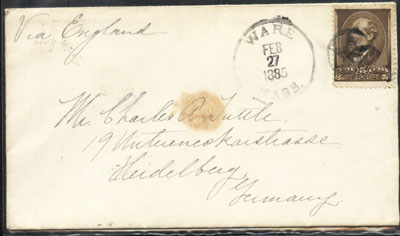 Via England
WARE
FEB
27
1885
MASS.
Mr. Charles A. Tuttle
19 Unterneckarstrasse
Heidelberg
Germany.